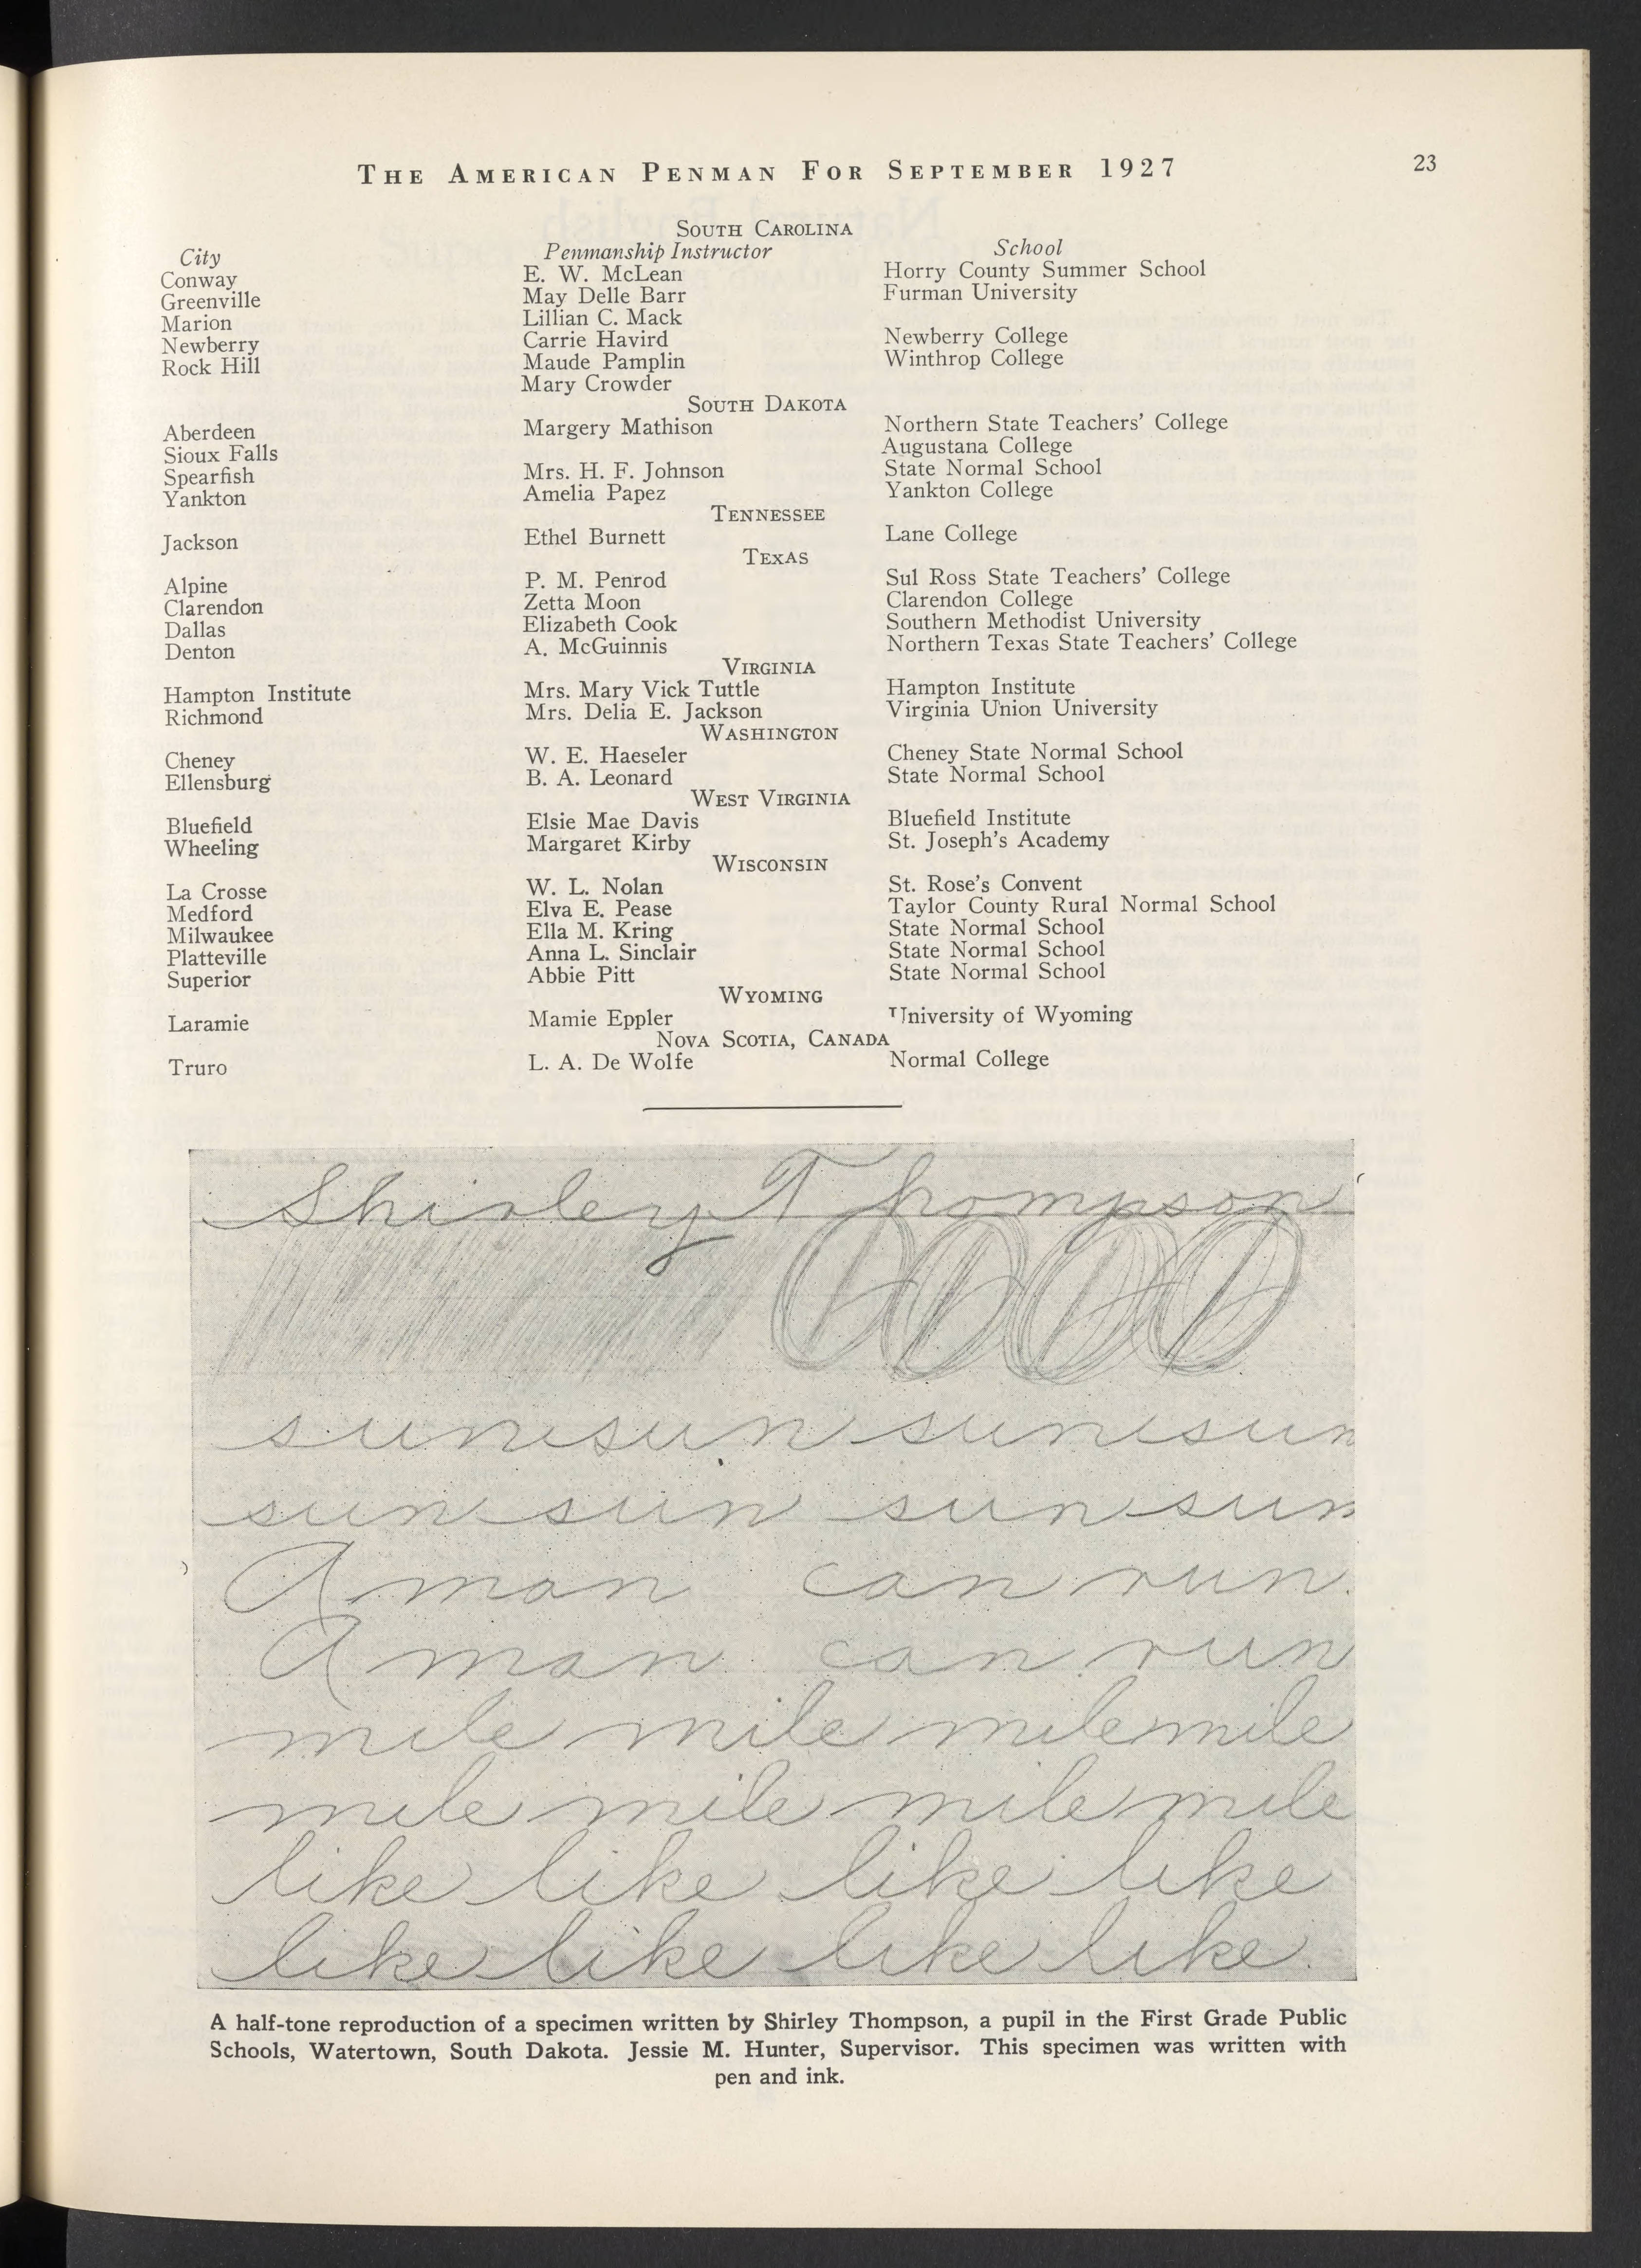 THE AMERICAN PENMAN FOR SEPTEMBER 1927 23
SOUTH CAROLINA
City Penmanship Instructor School
Conway E. W. McLean Horry County Summer School
Greenville May Delle Barr Furman University
Marion Lillian C. Mack
Newberry Carrie Havird Newberry College
Rock Hill Maude Pamplin Winthrop College
Mary Crowder
SOUTH DAKOTA
Aberdeen Margery Mathison Northern State Teachers' College
Sioux Falls Augustana College
Spearfish Mrs. H. F. Johnson State Normal School
Yankton Amelia Papez Yankton College
TENNESSEE
Jackson Ethel Burnett Lane College
TEXAS
Alpine P. M. Penrod Sul Ross State Teachers' College
Clarendon Zetta Moon Clarendon College
Dallas Elizabeth Cook Southern Methodist University
Denton A. McGuinnis Northern Texas State Teachers' College
VIRGINIA
Hampton Institute Mrs. Mary Vick Tuttle Hampton Institute
Richmond Mrs. Delia E. Jackson Virginia Union University
WASHINGTON
Cheney W. E. Haeseler Cheney State Normal School
Ellensburg B. A. Leonard State Normal School
WEST VIRGINIA
Bluefield Elsie Mae Davis Bluefield Institute
Wheeling Margaret Kirby St. Joseph's Academy
WISCONSIN
La Crosse W. L. Nolan St. Rose's Convent
Medford Elva E. Pease Taylor County Rural Normal School
Milwaukee Ella M. Kring State Normal School
Platteville Anna L. Sinclair State Normal School
Superior Abbie Pitt State Normal School
WYOMING
Laramie Mamie Eppler University of Wyoming
NOVA SCOTIA, CANADA
Truro L. A. De Wolfe Normal College
Shirley Thompson
sun sun sun sun
sun sun sun sun
A man can run.
A man can run
mile mile mile mile
mile mile mile mile
like like like like
like like like like.
A half-tone reproduction of a specimen written by Shirley Thompson, a pupil in the First Grade Public
Schools, Watertown, South Dakota. Jessie M. Hunter, Supervisor. This specimen was written with
pen and ink.